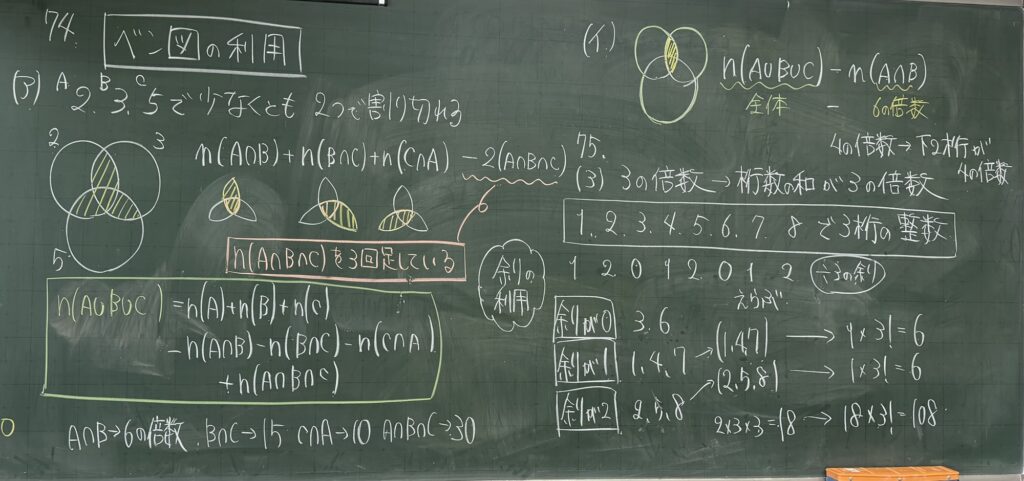 74.
ベン図の利用
(ア) 2.3.5で少なくとも 2つで割り切れる
A B C
2 3
5
n(A∩B)+n(B∩C)+n(C∩A) -2(A∩B∩C)
n(A∩B∩C)を3回足している
n(A∪B∪C) =n(A)+n(B)+n(C)
-n(A∩B)-n(B∩C)-n(C∩A)
+n(A∩B∩C)
A∩B→6の倍数. B∩C→15 C∩A→10 A∩B∩C→30
(イ.)
n(A∪B∪C) - n(A∩B)
全体 - 6の倍数
75.
4の倍数→下2桁が
4の倍数
(3) 3の倍数→桁数の和が3の倍数
1.2.3.4.5.6.7.8で3桁の整数
余りの
利用
1 2 0 1 2 0 1 2 ÷3の余り
えらぶ
余りが0 3.6
余りが1 1,4,7 → (1,4,7) → 1×3!=6
余りが2 2,5,8 → (2,5,8) → 1×3!=6
2×3×3=18 → 18×3!=108